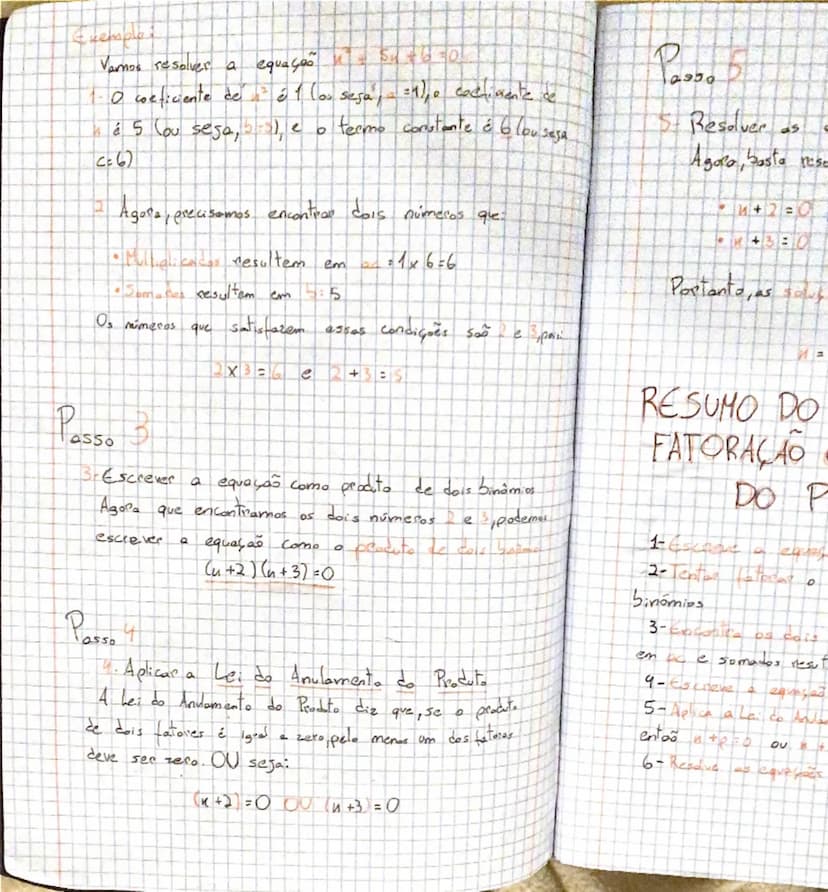 Exemplo:
Vamos resolver a equação x² + 5x + 6 = 0
1- O coeficiente de x² é 1 (ou seja, a = 1), o coeficiente de
x é 5 (ou seja, b = 5), e o termo constante é 6 (ou seja
c = 6)
2 Agora, precisamos encontrar dois números que:
• Multiplicados resultem em ac = 1 x 6 = 6
• Somados resultem em b = 5
Os números que satisfazem essas condições saõ 2 e 3, pois:
2 x 3 = 6 e 2 + 3 = 5
Passo 3
3- Escrever a equaçaõ como produto de dois binómios
Agora que encontramos os dois números 2 e 3, podemos
escrever a equaçaõ como o produto de dois
(x + 2) (x + 3) = 0
Passo 4
4. Aplicar a Lei do Anulamento do Produto
A Lei do Anulamento do Produto diz que, se o produto
de dois fatores é igual a zero, pelo menos um dos fatores
deve ser zero. OU seja:
(x + 2) = 0 OU (x + 3) = 0
Passo 5
5- Resolver as
Agora, basta
• x + 2 = 0
• x + 3 = 0
Portanto, as
x =
RESUMO DO
FATORAÇÃO
DO P
1- Escreve a
2- Tentar fatorar o
binómios
3- Encontra os dois
em ac e somados
4- Escreve a equação
5- Aplica a Lei do
entaõ x + p = 0 ou x +
6- Resolve as equações